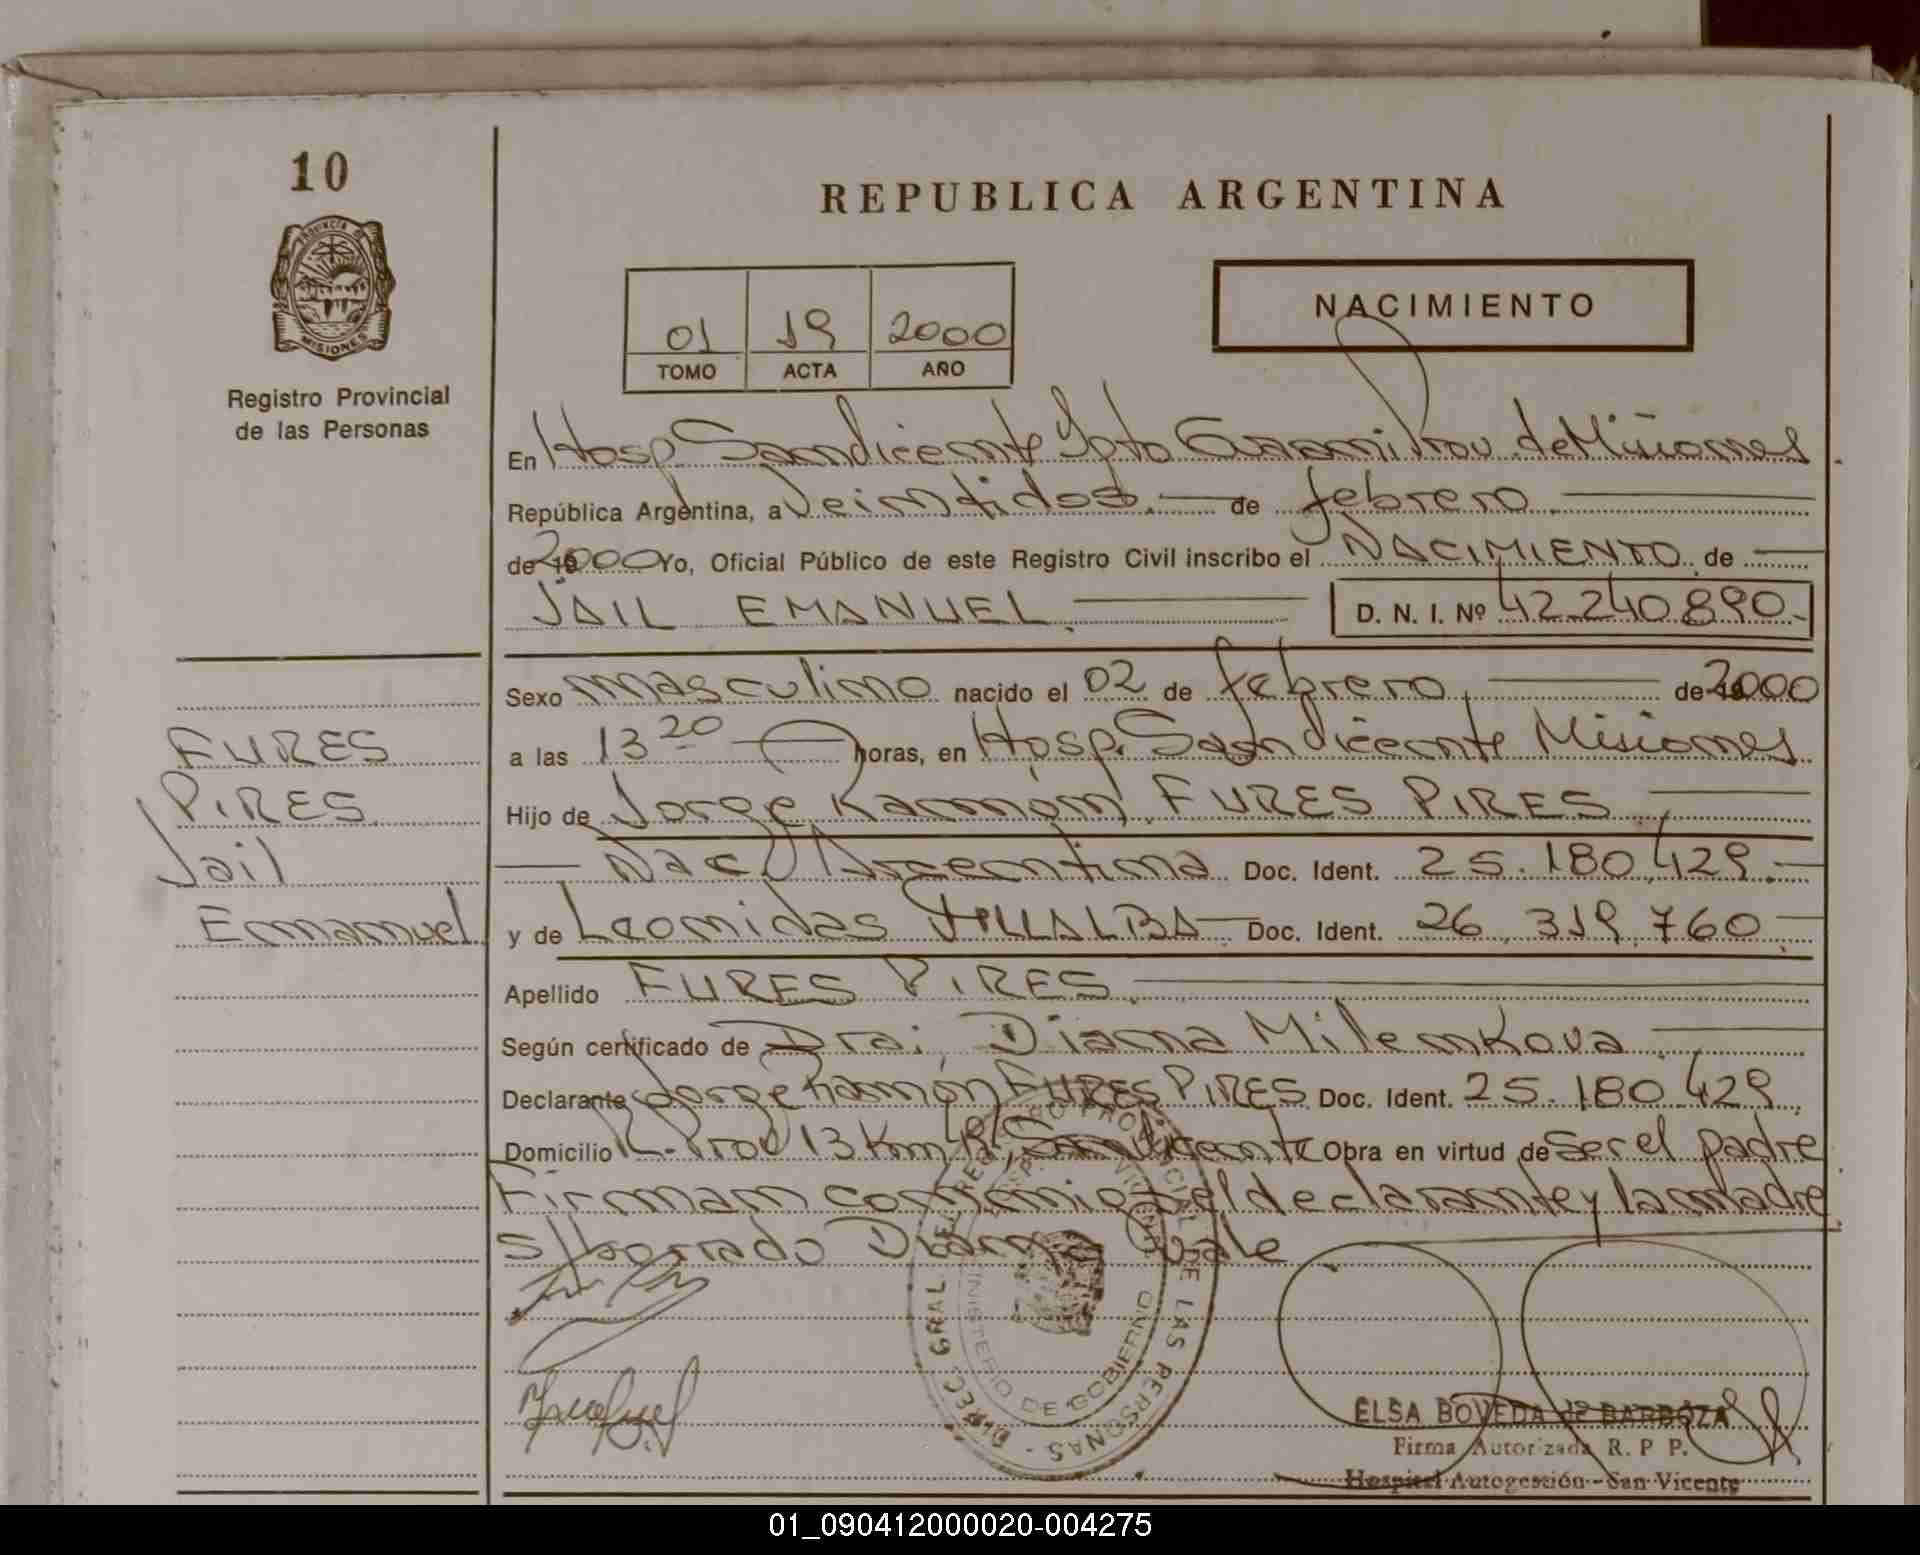 10
PROVINCIA DE
MISIONES
Registro Provincial
de las Personas
REPUBLICA ARGENTINA
01 19 2000
TOMO ACTA AÑO
NACIMIENTO
En Hosp. San Vicente Dpto Guarani Prov. de Misiones
República Argentina, a Veintidos. de febrero
de 2000 Yo, Oficial Público de este Registro Civil inscribo el NACIMIENTO de
JAIL EMANUEL. D. N. I. Nº 42.240.890.-
Sexo masculino nacido el 02 de febrero. de 2000
a las 13 20 horas, en Hosp. San Vicente Misiones
FURES
PIRES
Jail
Emmanuel
Hijo de Jorge Ramón FURES PIRES.
Nac. Argentina Doc. Ident. 25.180.429.-
y de Leonidas VILLALBA Doc. Ident. 26.319.760.-
Apellido FURES PIRES.
Según certificado de Dra: Diana Milenkova.
Declarante Jorge Ramón FURES PIRES Doc. Ident. 25.180.429.
Domicilio R. Prov 13 Km San Vicente Obra en virtud de ser el padre
Firman conmigo el declarante y la madre
s/borrado Diana Vale
DIREC. GRAL. DEL REGISTRO PROVINCIAL DE LAS PERSONAS -
MINISTERIO DE GOBIERNO
ELSA BOVEDA de BARBOZA
Firma Autorizada R. P P.
Hospital Autogestión - San Vicente
01_090412000020-004275